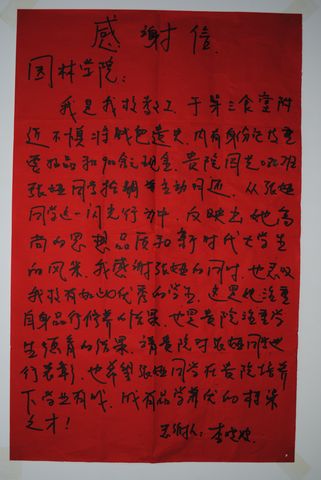 感谢信
园林学院:
我是我校教工,于第三食堂附
近不慎将钱包遗失,内有身份证及重
要物品和90余元现金,贵院园艺0202班
张娅同学拾到并主动归还,从张娅
同学这一闪光行为中,反映出她高
尚的思想品质和新时代大学生
的风采,我感谢张娅的同时,也感叹
我校有如此优秀的学生,这是她注重
自身品行修养的结果,也是贵院注重学
生德育的结果,请贵院对张娅同学进
行表彰,也希望张娅同学在贵院培养
下学业有成,成有品学兼优的栋梁
之才!
感谢人:李